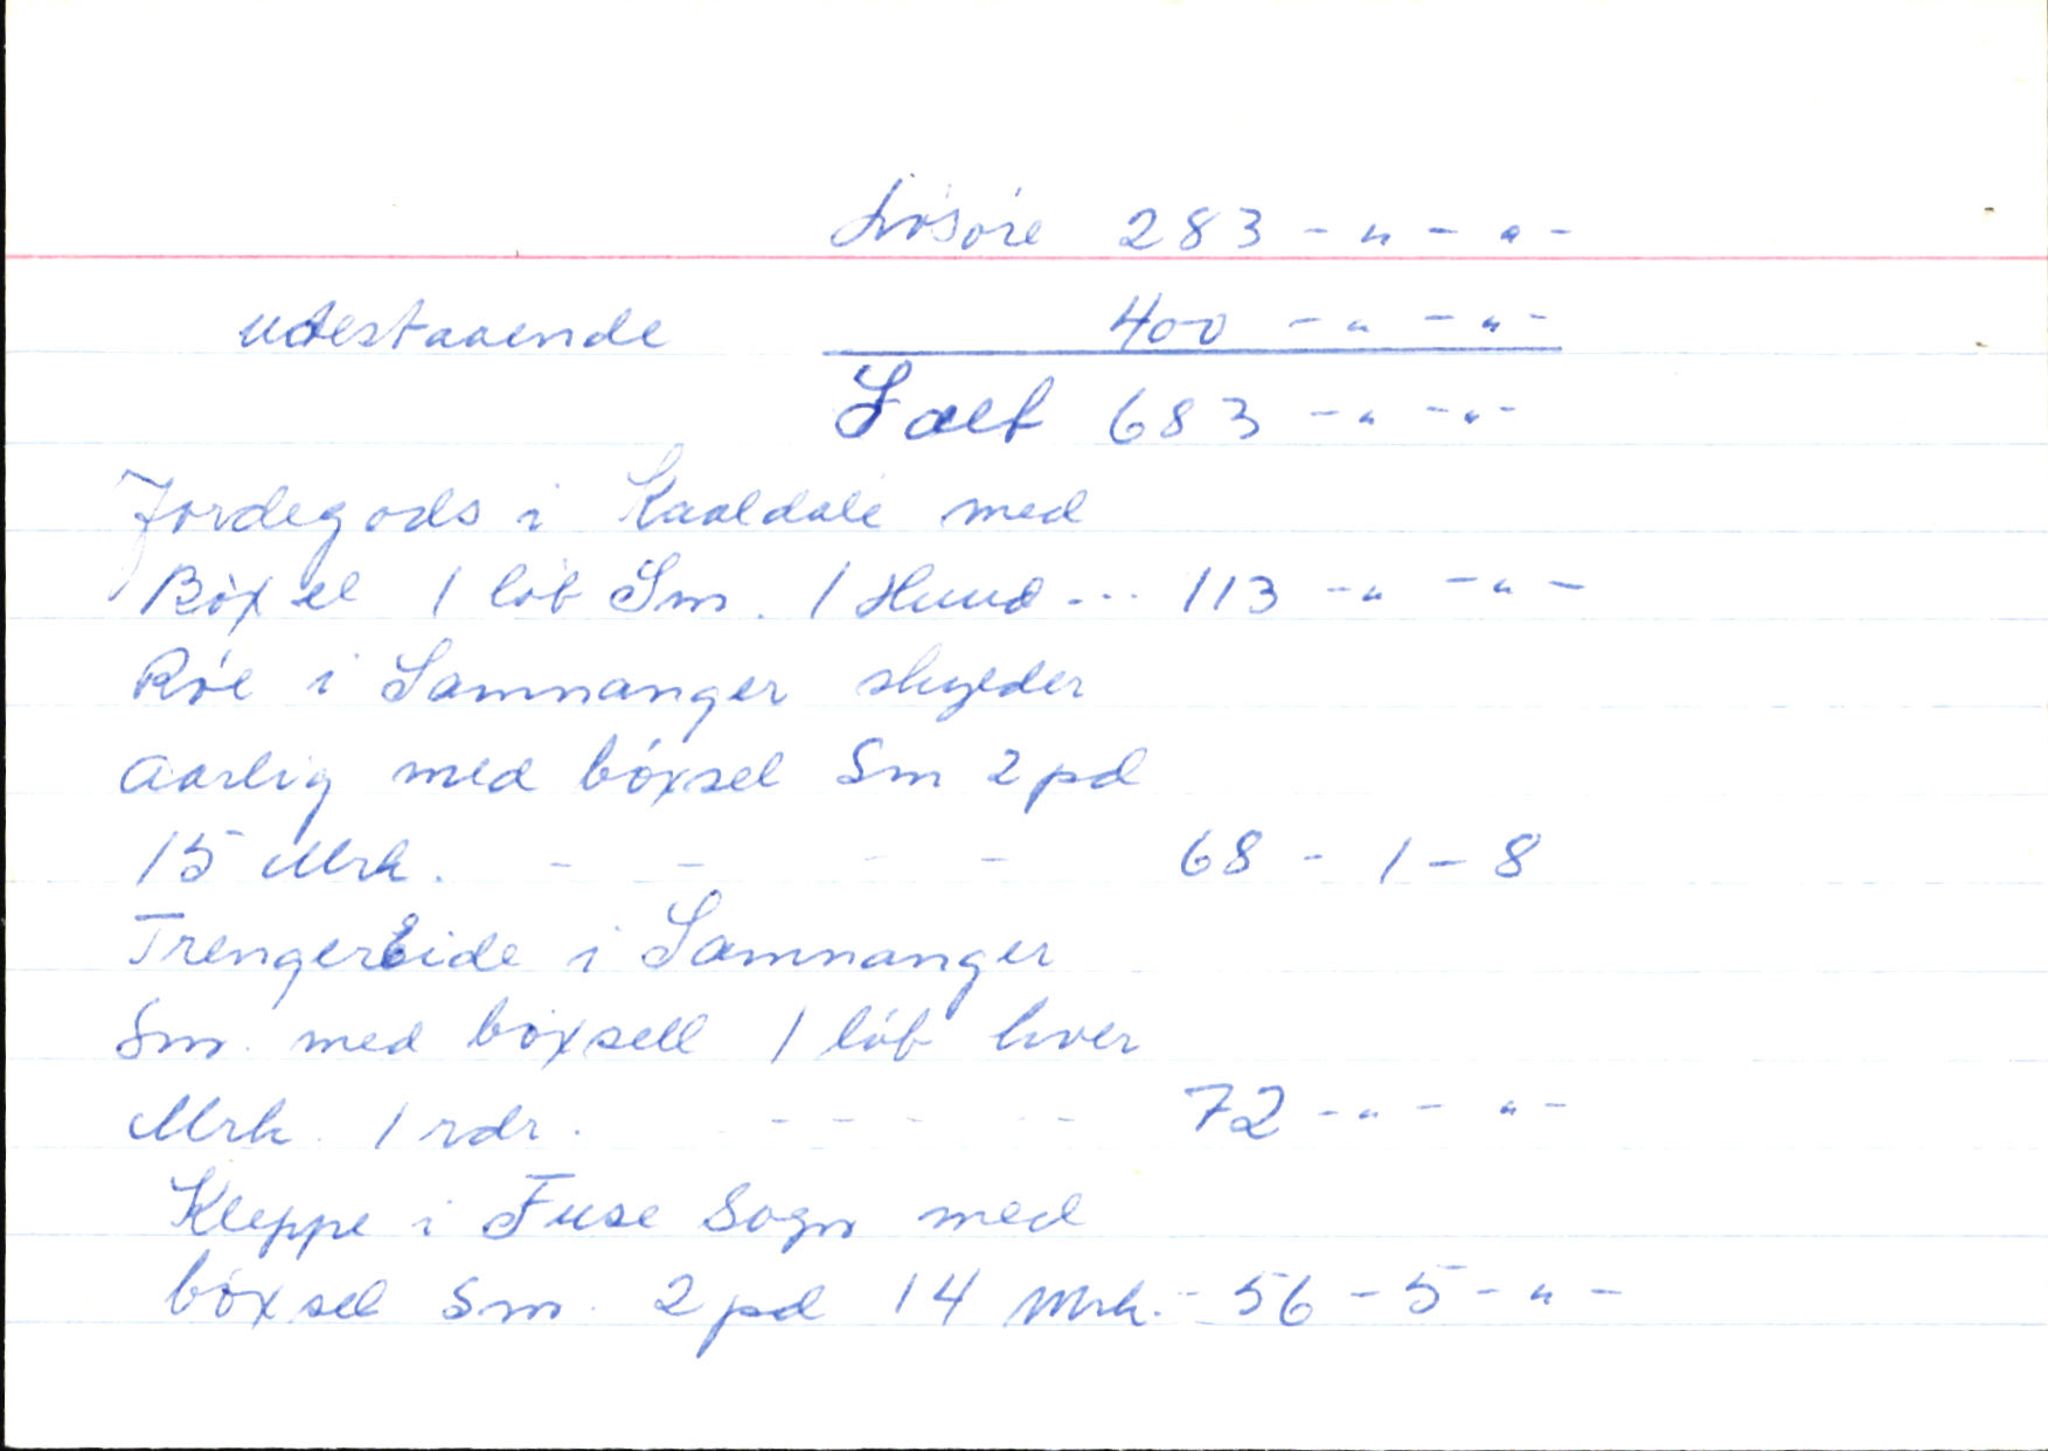 Løsøre 283 - " - " -
udestaaende 400 - " - " -
I alt 683 - " - " -
Jordegods i Kaaldale med
Bøxel 1 løb Sm. 1 Huud ... 113 - " - " -
Røe i Samnanger skylder
aarlig med bøxsel Sm 2 pd
15 Mrk. - - - - 68 - 1 - 8
TrengerEide i Samnanger
Sm. med bøxsell 1 løb hver
Mrk. 1 rdr. - - - - - 72 - " - " -
Kleppe i Fuse Sogn med
bøxsel Sm. 2 pd 14 Mrk. - 56 - 5 - " -